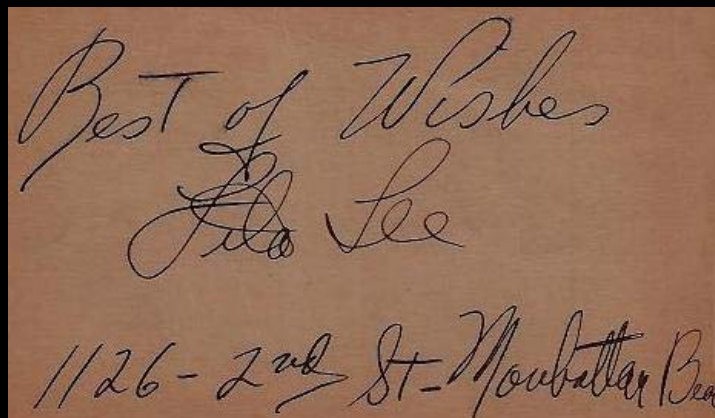 Best of Wishes
Lila Lee
1126 - 2nd St - Manhattan Bea